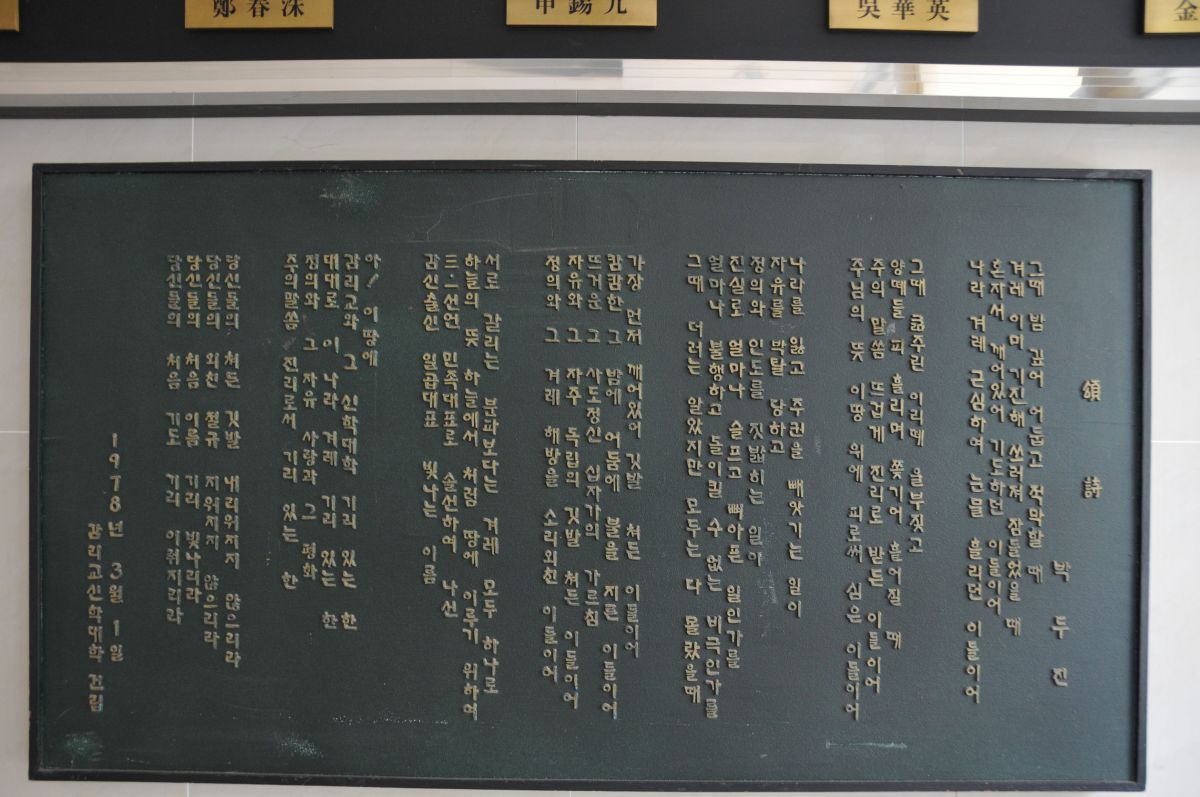 鄭春洙
申錫九
吳華英
金
頌 詩
박 두 진
그때 밤 깊어 어둡고 적막할 때
겨레 이미 기진해 쓰러져 잠들었을 때
혼자서 깨어있어 기도하던 이들이어
나라 겨레 근심하여 눈물 흘리던 이들이어
그때 굶주린 이리떼 울부짖고
양떼들 피 흘리며 쫓기어 흩어질 때
주의 말씀 뜨겁게 진리로 받든 이들이어
주님의 뜻 이땅 위에 피로써 심은 이들이어
나라를 잃고 주권을 빼앗기는 일이
자유를 박탈 당하고
정의와 인도를 짓밟히는 일이
진실로 얼마나 슬프고 뼈아픈 일인가를
얼마나 불행하고 돌이킬 수 없는 비극인가를
그때 더러는 알았지만 모두는 다 몰랐을때
가장 먼저 깨어있어 깃발 쳐든 이들이어
캄캄한 그 밤에 어둠에 불을 지른 이들이어
뜨거운 그 사도정신 십자가의 가르침
자유와 그 자주 독립의 깃발 쳐든 이들이어
정의와 그 겨레 해방을 소리외친 이들이어
서로 갈리는 분파보다는 겨레 모두 하나로
하늘의 뜻 하늘에서 처럼 땅에 이루기 위하여
三·一선언 민족대표로 솔선하여 나선
감신출신 일곱대표 빛나는 이름
아! 이땅에
감리교와 그 신학대학 기리 있는 한
대대로 이 나라 겨레 기리 있는 한
정의와 그 자유 사랑과 그 평화
주의말씀 진리로서 기리 있는 한
당신들의 쳐든 깃발 내리워지지 않으리라
당신들의 외친 절규 지워지지 않으리라
당신들의 처음 이름 기리 빛나리라
당신들의 처음 기도 기리 이뤄지리라
1978년 3월 1일
감리교신학대학 건립